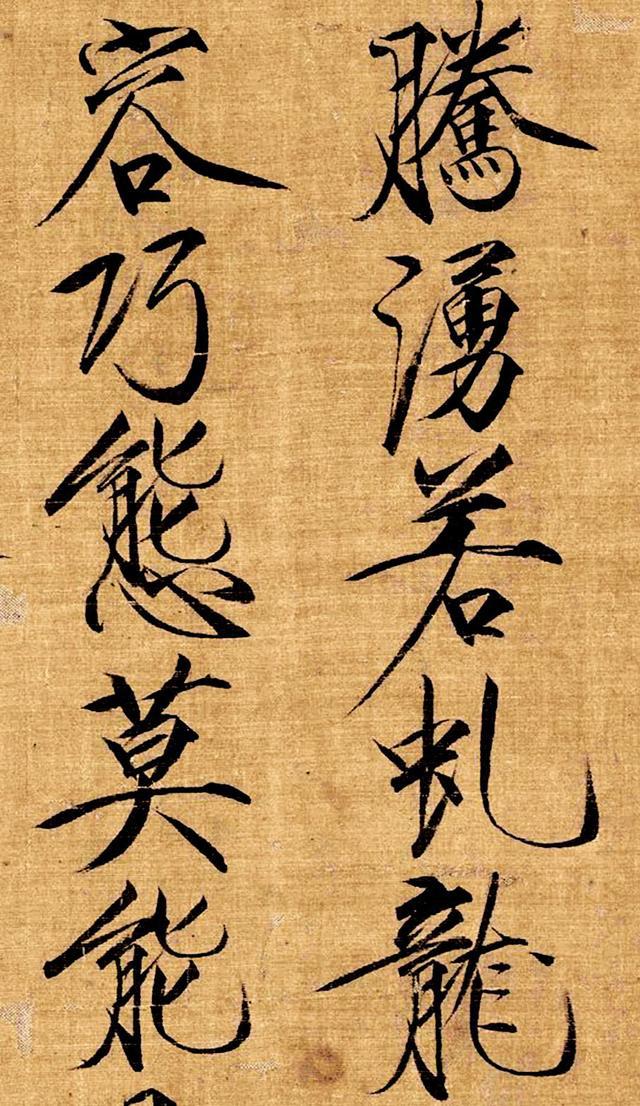 騰湧若虬龍
容巧態莫能